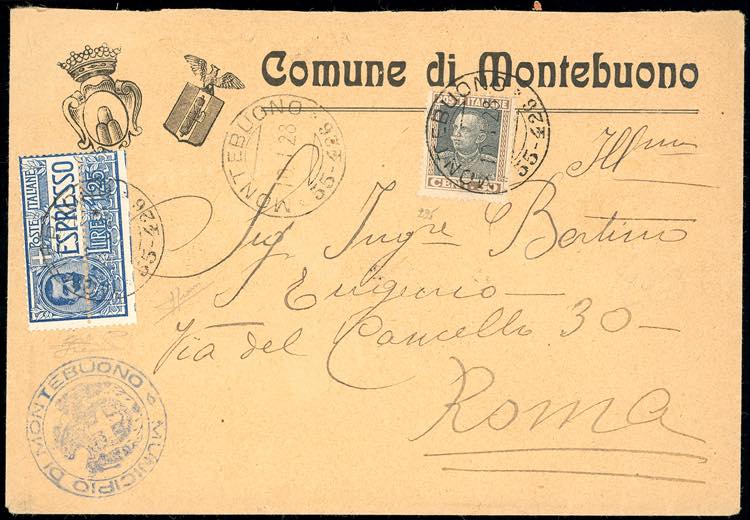 Comune di Montebuono
MONTEBUONO
1.28
35-426
MONTEBUONO
35-426
POSTE ITALIANE
ESPRESSO
LIRE 1,25
35-426
Ill.mo
Sig. Ingre Bertino
Eugenio —
Via del Cancello 30 —
Roma
MUNICIPIO DI MONTEBUONO